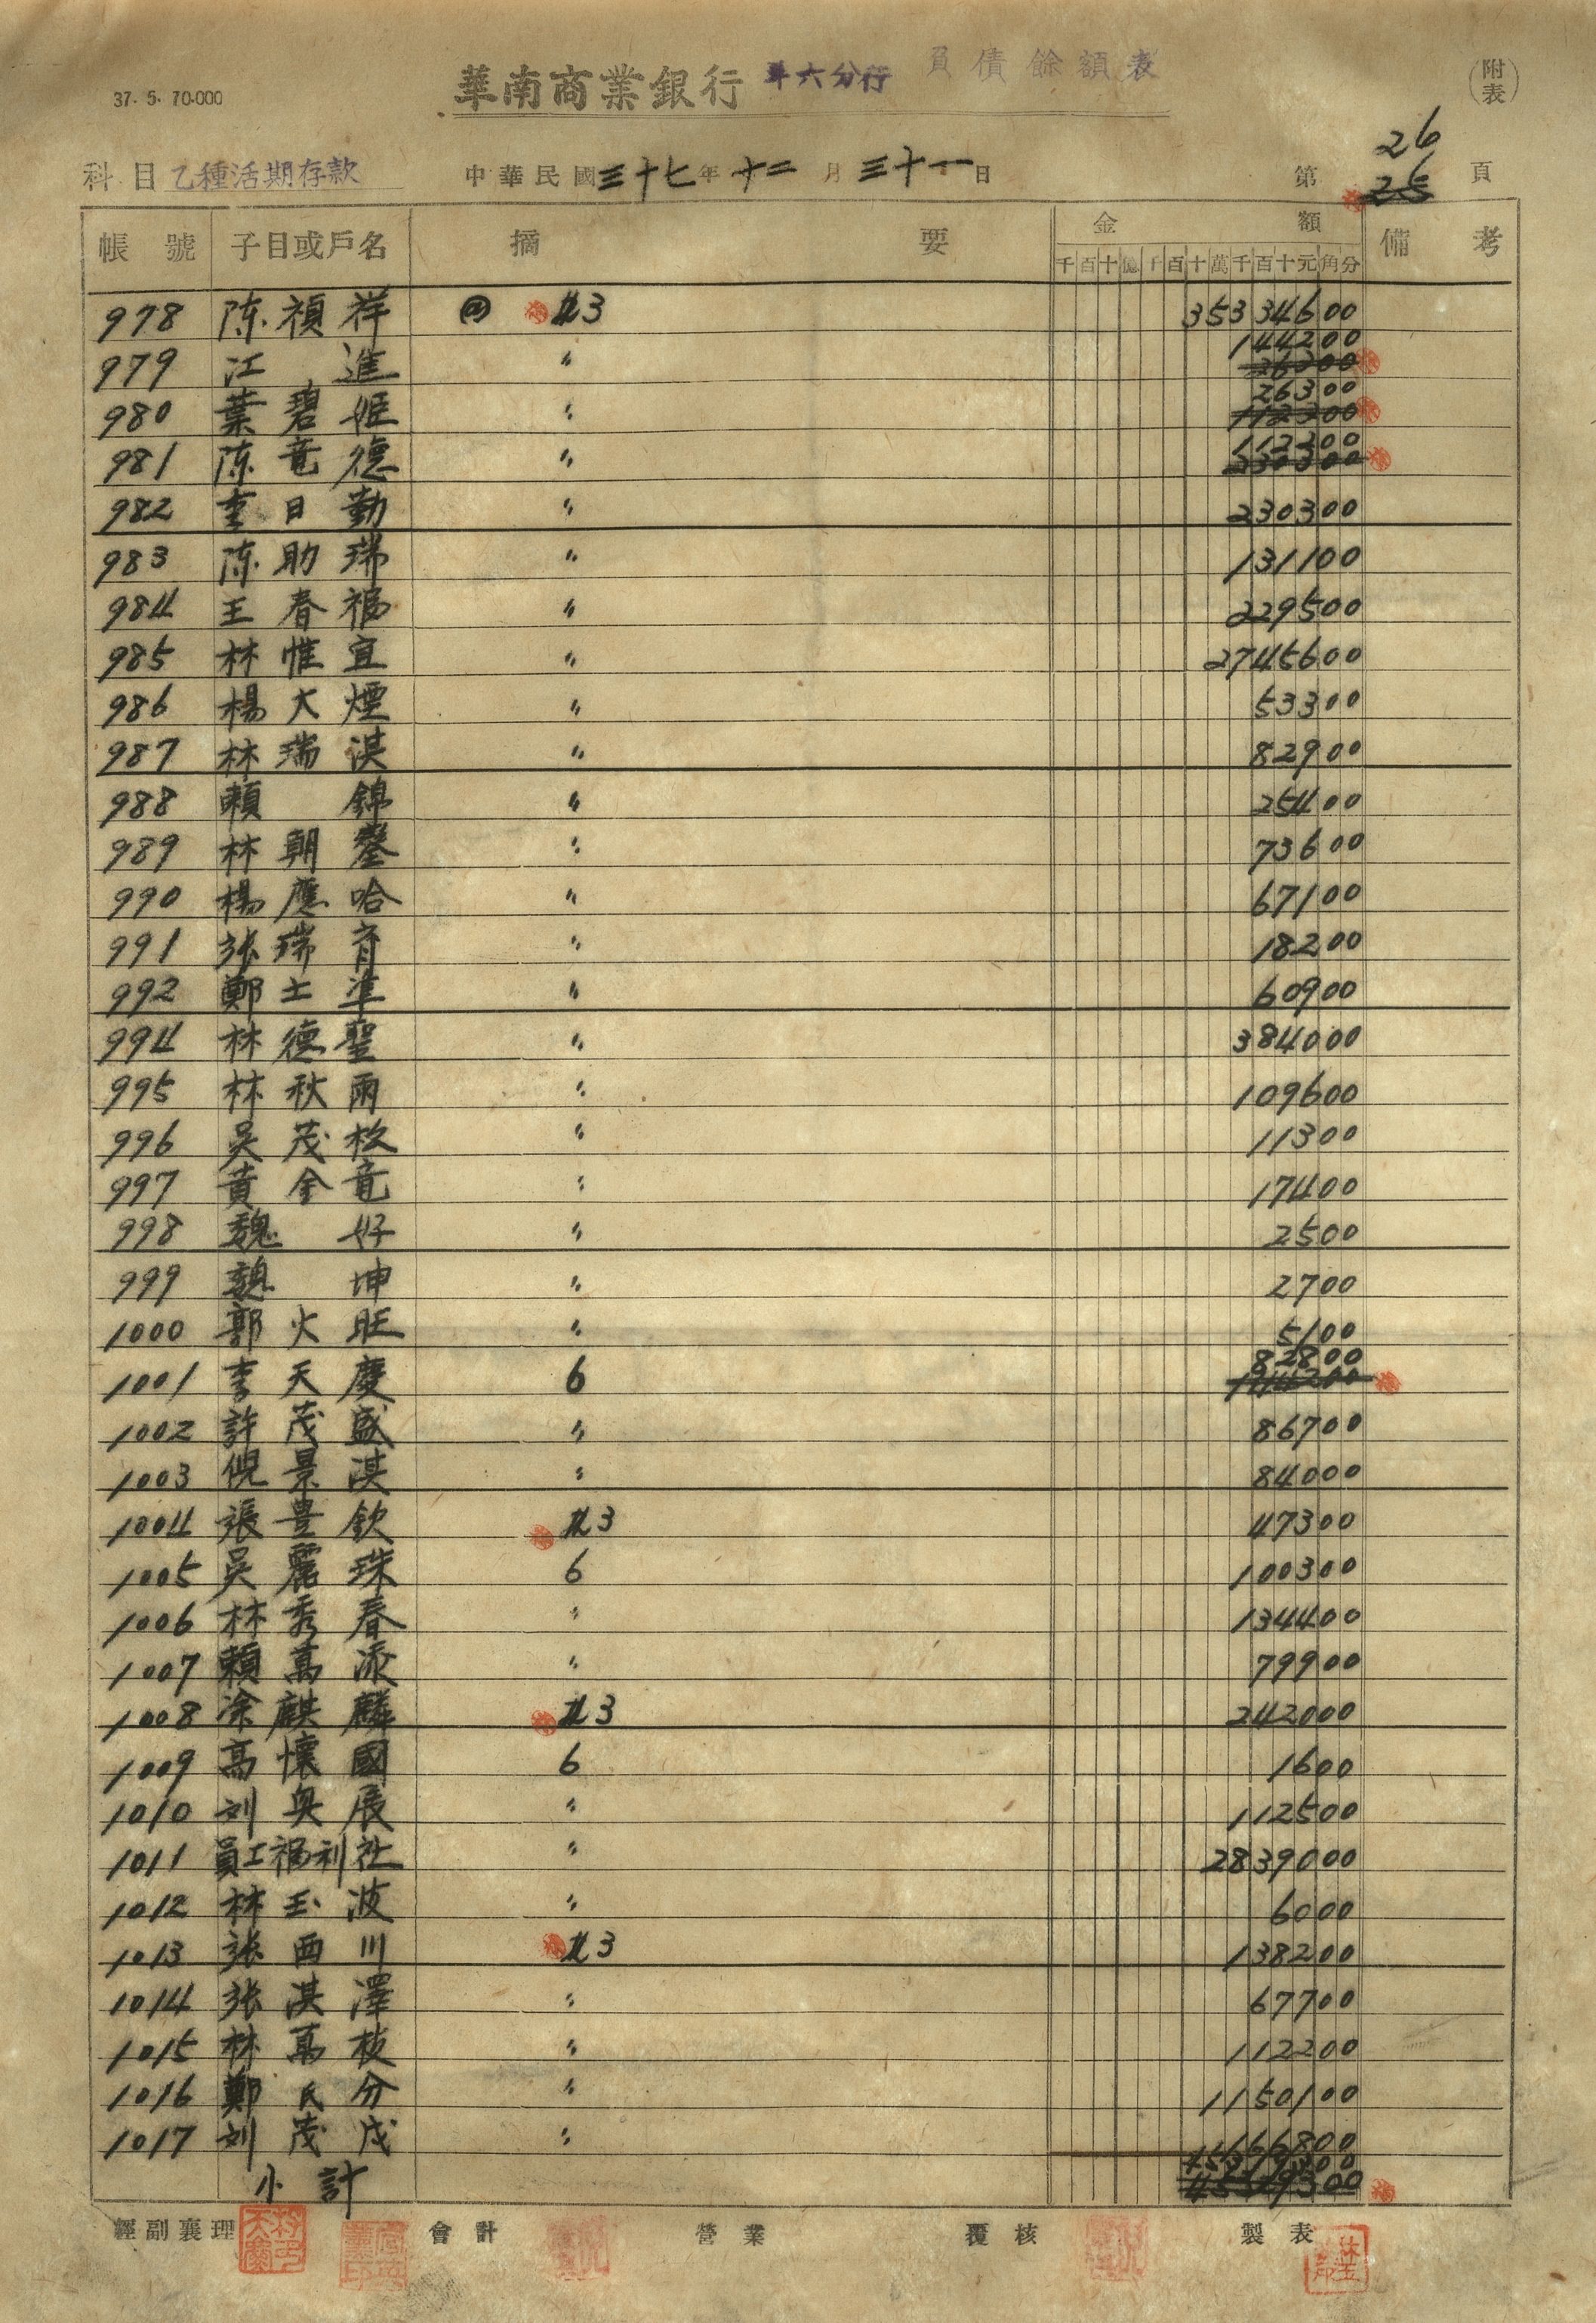 37. 5. 70.000
華南商業銀行 斗六分行 負債餘額表
(附表)
科目 乙種活期存款 中華民國三十七年十二月三十一日 第 26 25 頁
帳號 子目或戶名 摘要 金額 備考
千百十億千百十萬千百十元角分
978 陈禎祥 3 35334600
979 江進 〃 144200 26300
980 葉碧姫 〃 26300 112300
981 陈竜德 〃 112300 230300
982 李日勤 〃 230300
983 陈助瑞 〃 131100
984 王春福 〃 229500
985 林惟宜 〃 2745600
986 楊大煙 〃 53300
987 林瑞淇 〃 82900
988 賴錦 〃 25400
989 林朝 〃 73600
990 楊應哈 〃 67100
991 张瑞育 〃 18200
992 鄭士準 〃 60900
994 林德聖 〃 384000
995 林秋雨 〃 109600
996 吳茂松 〃 11300
997 黄金竜 〃 17400
998 魏好 〃 2500
999 魏坤 〃 2700
1000 郭火旺 〃 5100
1001 李天慶 6 82800
1002 許茂盛 〃 86700
1003 倪景淇 〃 84000
1004 張豊欽 3 47300
1005 吳麗珠 6 100300
1006 林秀春 〃 134400
1007 賴萬添 〃 79900
1008 涂麒麟 3 242000
1009 高懷國 6 1600
1010 刘奥展 〃 112500
1011 員工福利社 〃 2839000
1012 林玉波 〃 6000
1013 张西川 3 138200
1014 张淇澤 〃 67700
1015 林萬枝 〃 112200
1016 鄭氏分 〃 1150100
1017 刘茂戊 〃 166800
小計
經副襄理 會計 營業 覆核 製表